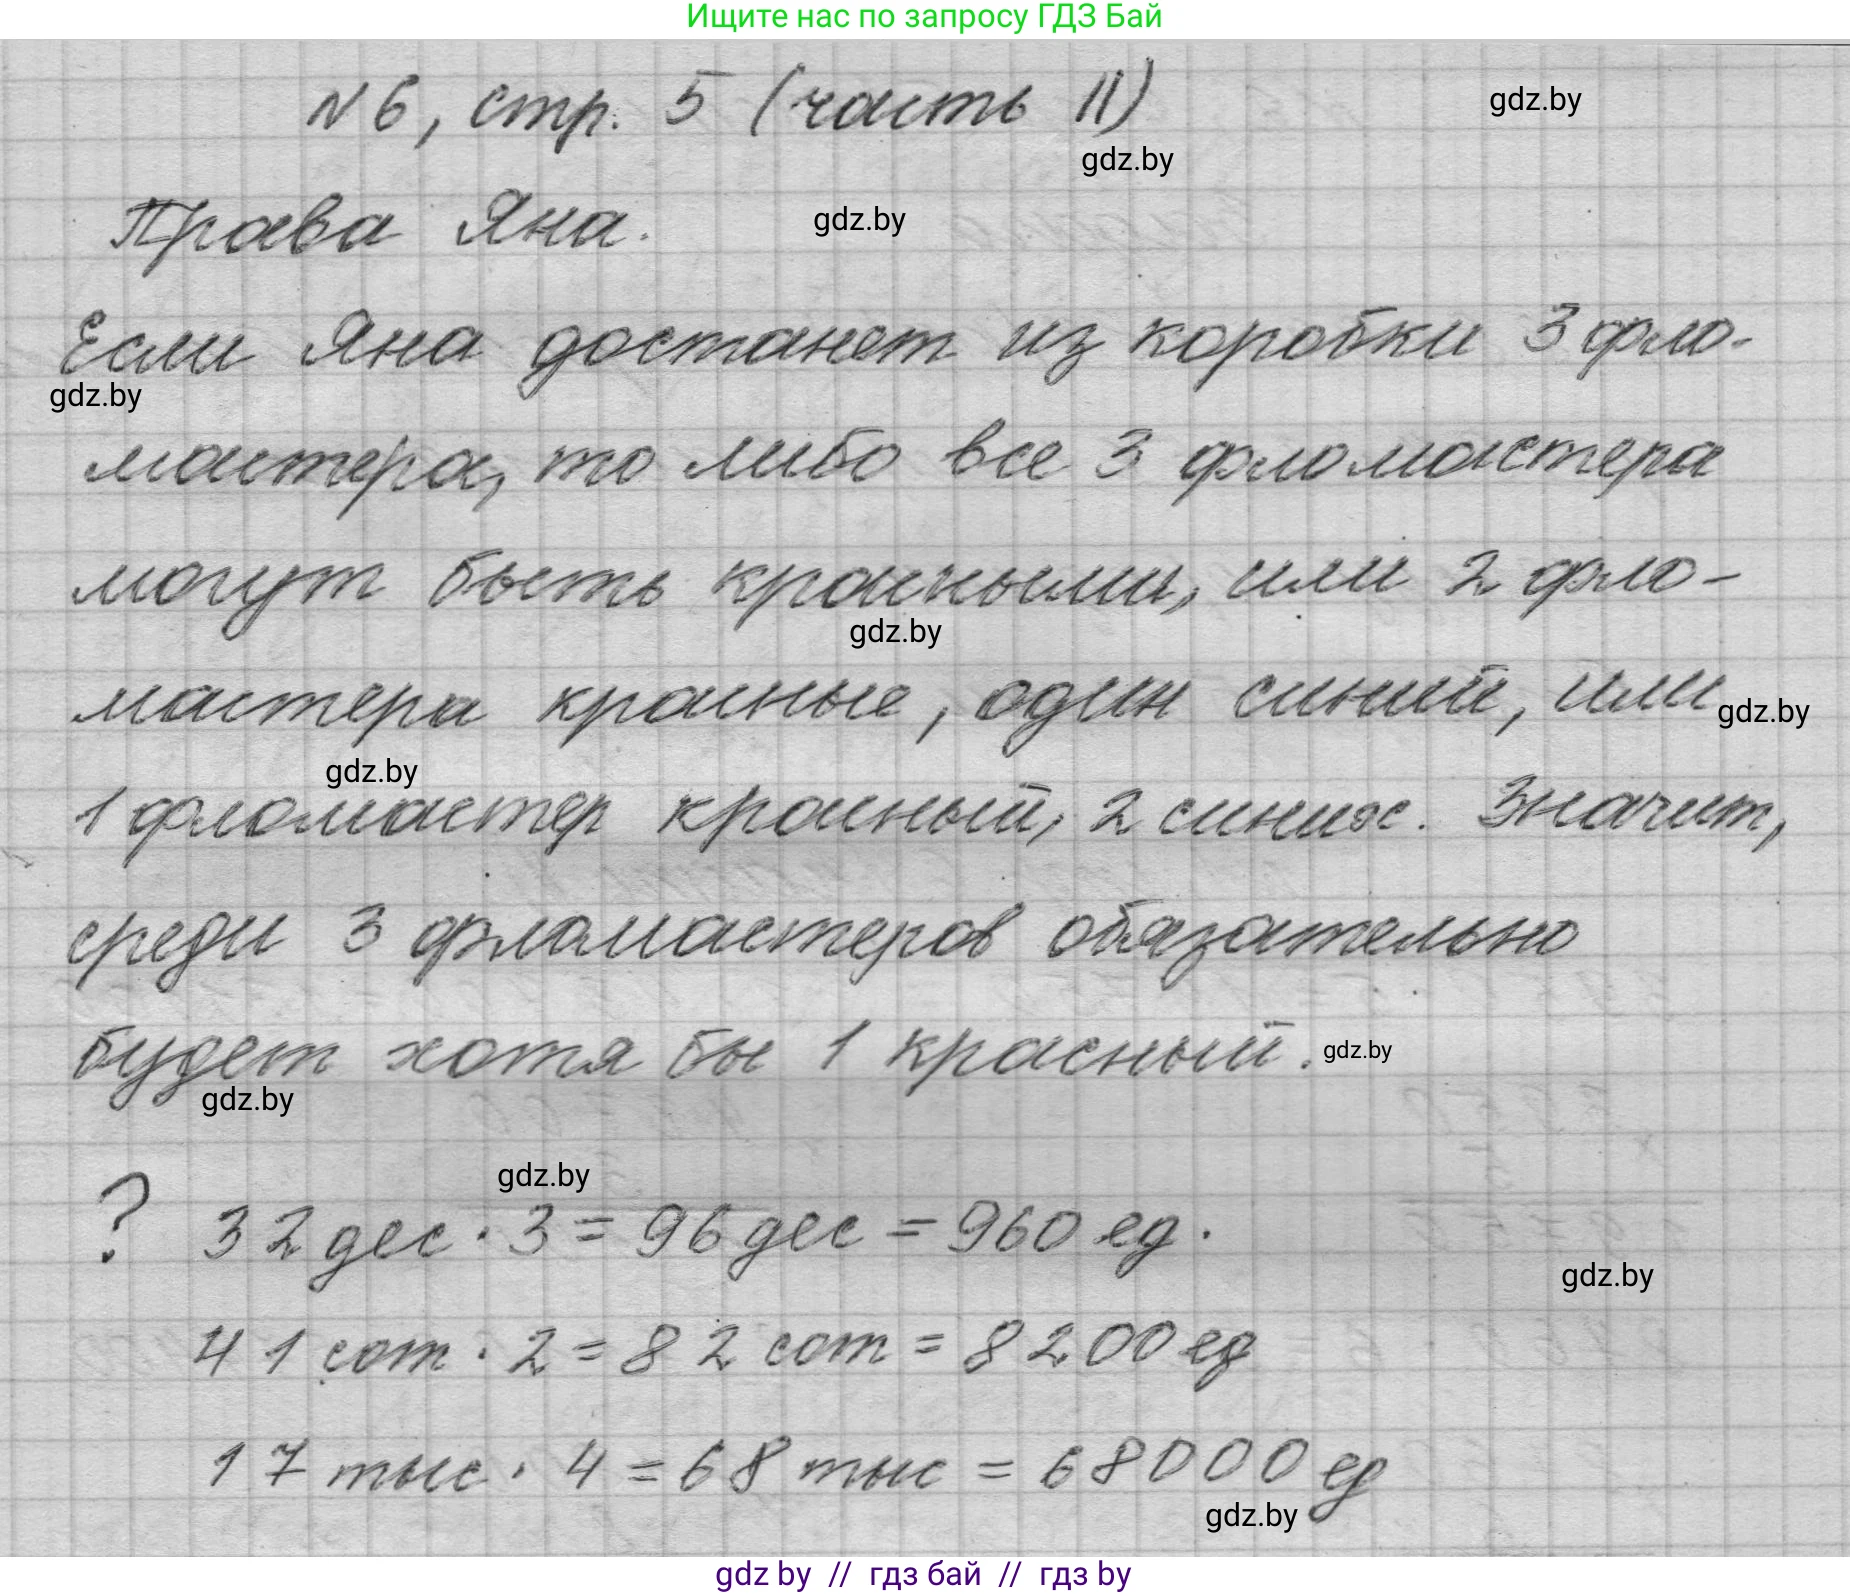 Ищите нас по запросу ГДЗ Бай
№6, стр. 5 (часть II)
gdz.by
gdz.by
Права Яна.
gdz.by
Если Яна достанет из коробки 3 фло-
gdz.by
мастера, то либо все 3 фломастера
могут быть красными, или 2 фло-
gdz.by
мастера красные, один синий, или
gdz.by
gdz.by
1 фломастер красный, 2 синих. Значит,
среди 3 фломастеров обязательно
будет хотя бы 1 красный.
gdz.by
gdz.by
gdz.by
? 32 дес · 3 = 96 дес = 960 ед.
gdz.by
41 сот · 2 = 82 сот = 8200 ед
17 тыс · 4 = 68 тыс = 68000 ед
gdz.by
gdz by // гдз бай // гдз by